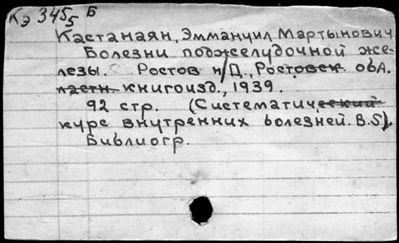 Кэ 345/5 Б
Кастанаян, Эммануил Мартынович
Болезни поджелудочной же-
лезы. Ростов н/Д., Ростовск. обл.
ластн. книгоизд., 1939.
92 стр. (Систематический
курс внутренних болезней. В.5).
Библиогр.